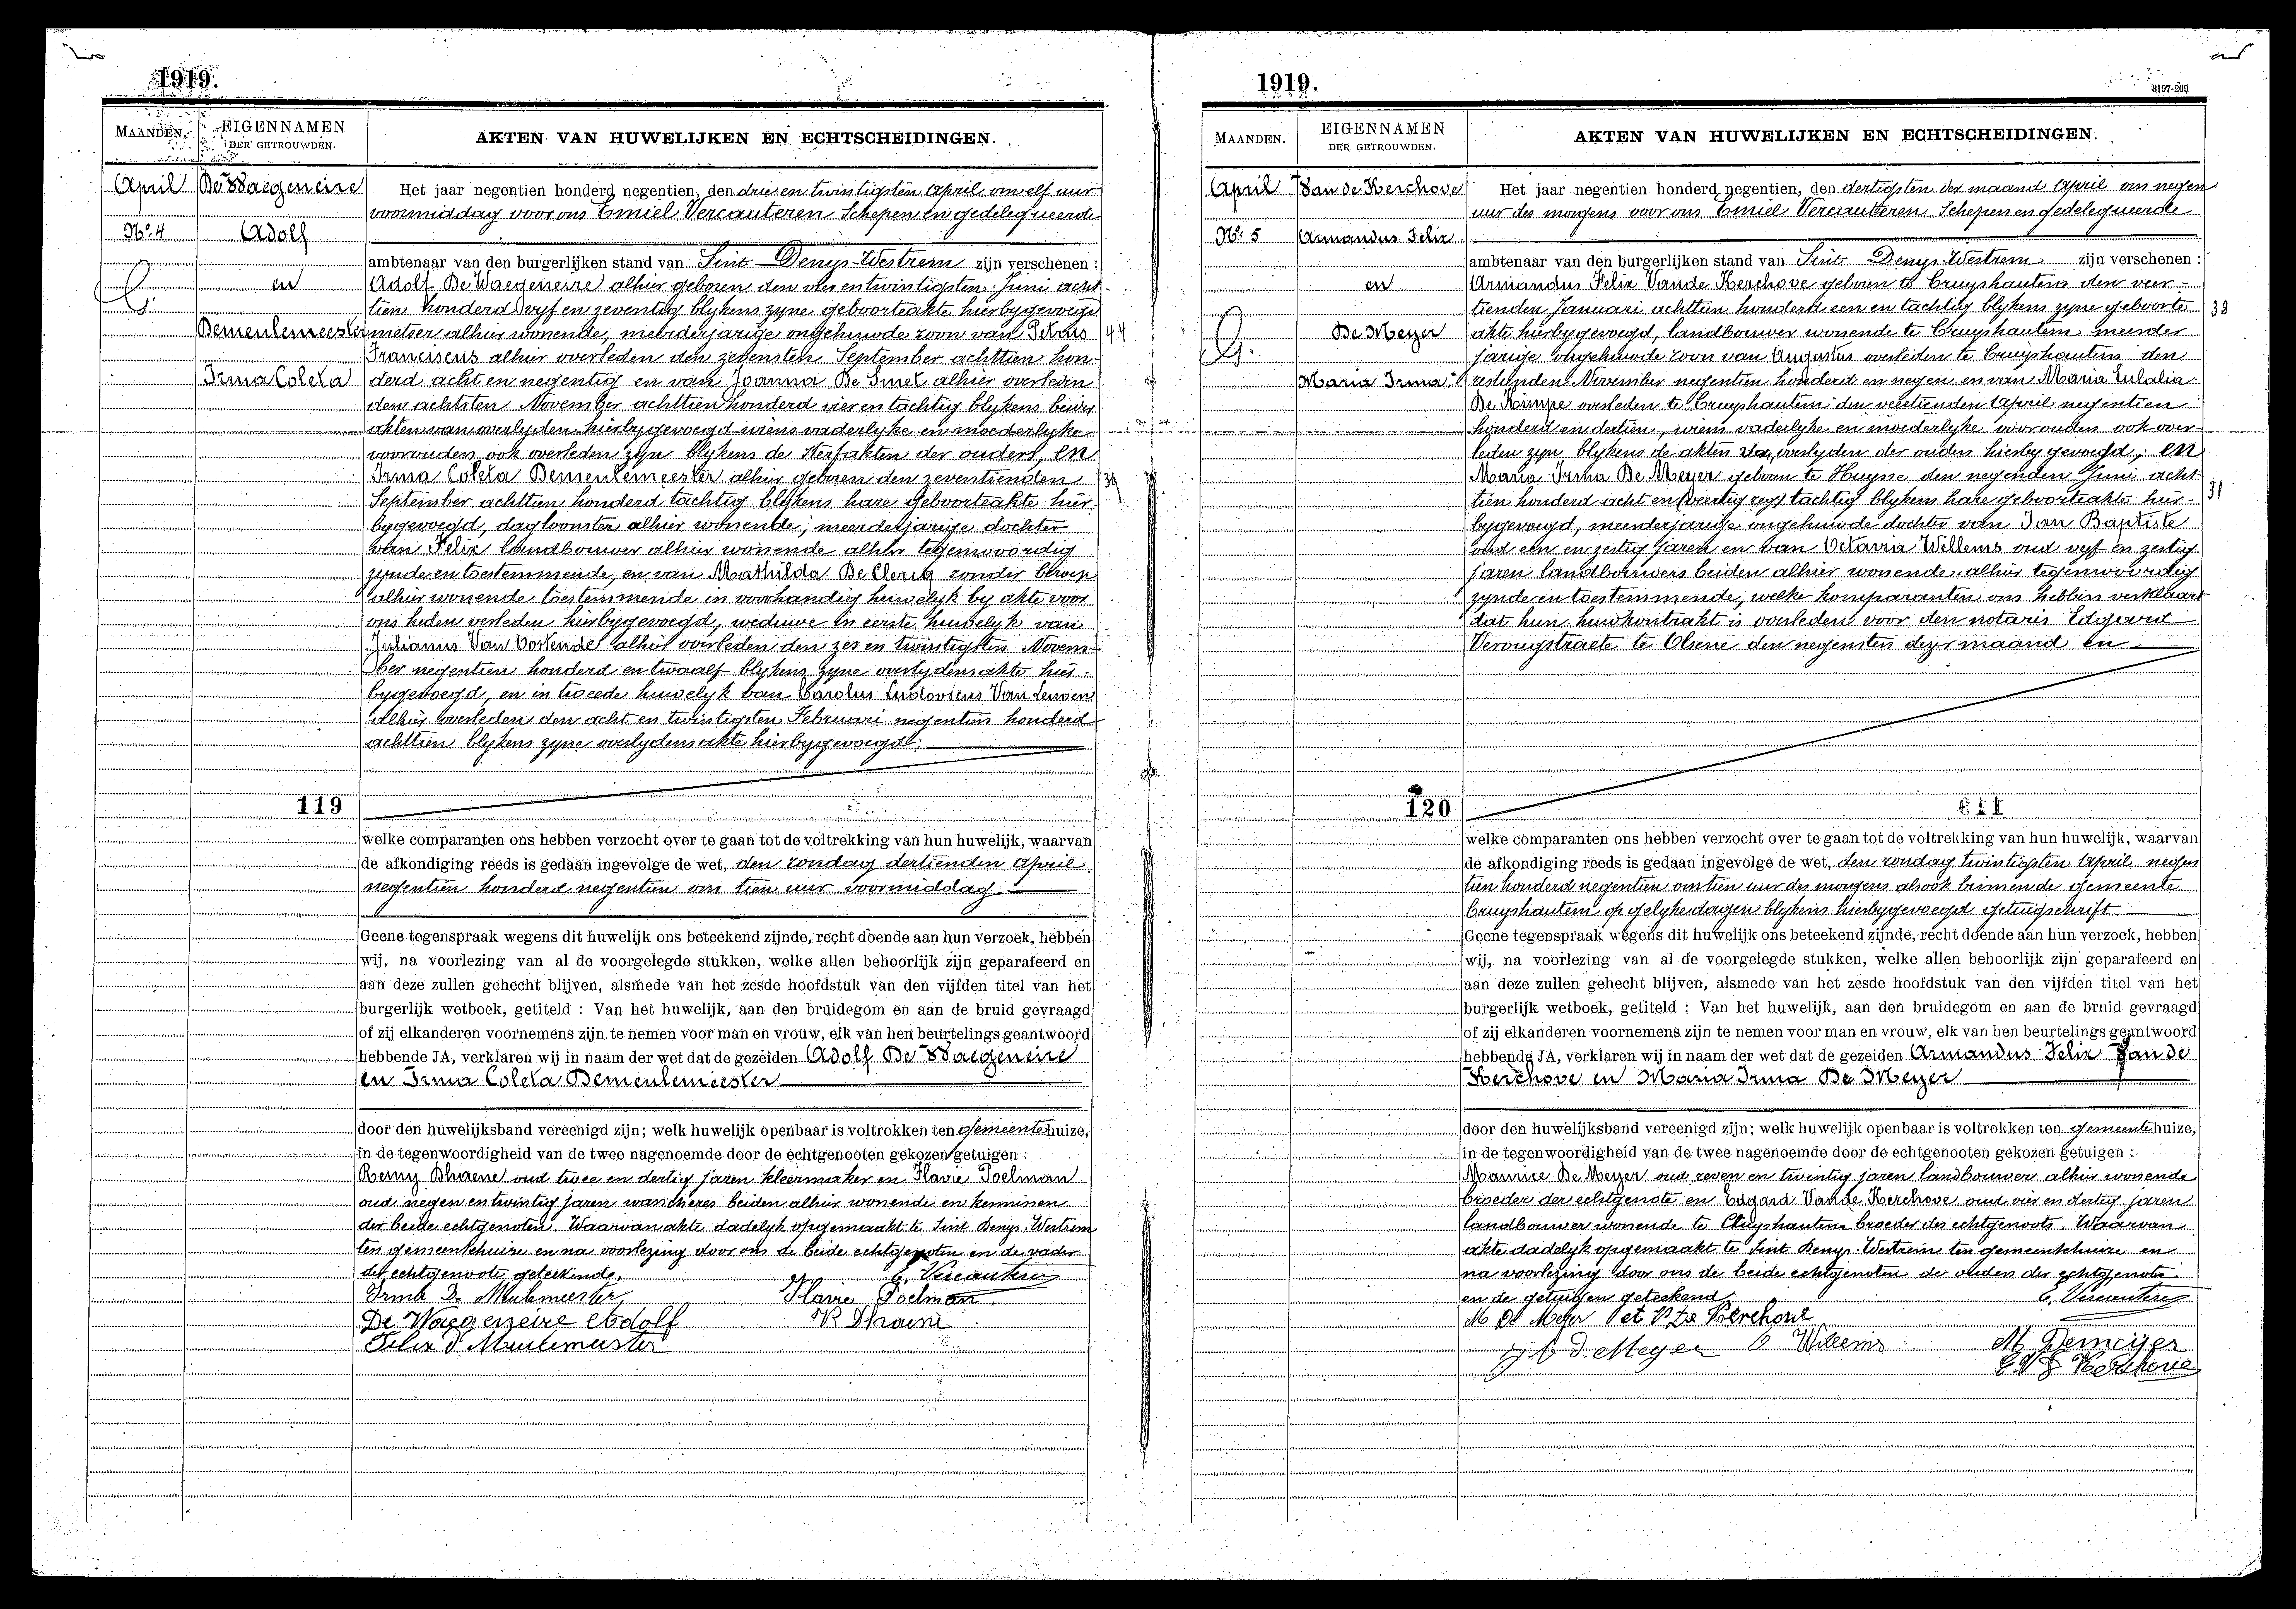 1919.
MAANDEN.
EIGENNAMEN
DER GETROUWDEN.
AKTEN VAN HUWELIJKEN EN ECHTSCHEIDINGEN.
April
De Waegeneire
No. 4
Adolf
en
Demeulemeester
Irma Coleta
44
39
Het jaar negentien honderd negentien, den drie en twintigsten April om elf uur
voormiddag voor ons Emiel Vercauteren Schepen en gedelegueerde
ambtenaar van den burgerlijken stand van Sint Denys-Westrem zijn verschenen :
Adolf De Waegeneire alhier geboren den vier en twintigsten Juni acht
tien honderd vyf en zeventig blykens zyne geboorteakte hierbygevoegd
metser alhier wonende, meerderjarige ongehuwde zoon van Petrus
Franciscus alhier overleden den zevensten September achttien hon-
derd acht en negentig en van Joanna De Smet alhier overleden
den achtsten November achttien honderd vier en tachtig blykens beider
akten van overlyden hierbygevoegd wiens vaderlyke en moederlyke
voorouders ook overleden zyn blykens de sterfakten der ouders, en
Irma Coleta Demeulemeester alhier geboren den zeventienden
September achttien honderd tachtig blykens hare geboorteakte hier-
bygevoegd, dagloonster alhier wonende, meerderjarige dochter
van Felix landbouwer alhier wonende alhier tegenwoordig
zynde en toestemmende, en van Mathilda De Clercq zonder beroep
alhier wonende toestemmende in voorhandig huwelyk by akte voor
ons heden verleden hierbygevoegd, weduwe in eerste huwelyk van
Julianus Van Oostende alhier overleden den zes en twintigsten Novem-
ber negentien honderd en twaalf blykens zyne overlydensakte hier-
bygevoegd, en in tweede huwelyk van Carolus Ludovicus Van Leuven
alhier overleden den acht en twintigsten Februari negentien honderd
achttien blykens zyne overlydensakte hierbygevoegd;
119
welke comparanten ons hebben verzocht over te gaan tot de voltrekking van hun huwelijk, waarvan
de afkondiging reeds is gedaan ingevolge de wet, den zondag dertienden April
negentien honderd negentien om tien uur voormiddag.
Geene tegenspraak wegens dit huwelijk ons beteekend zijnde, recht doende aan hun verzoek, hebben
wij, na voorlezing van al de voorgelegde stukken, welke allen behoorlijk zijn geparafeerd en
aan deze zullen gehecht blijven, alsmede van het zesde hoofdstuk van den vijfden titel van het
burgerlijk wetboek, getiteld : Van het huwelijk, aan den bruidegom en aan de bruid gevraagd
of zij elkanderen voornemens zijn te nemen voor man en vrouw, elk van hen beurtelings geantwoord
hebbende JA, verklaren wij in naam der wet dat de gezeiden Adolf De Waegeneire
en Irma Coleta Demeulemeester
door den huwelijksband vereenigd zijn; welk huwelijk openbaar is voltrokken ten gemeentehuize,
in de tegenwoordigheid van de twee nagenoemde door de echtgenooten gekozen getuigen :
Remy Dhaene oud twee en dertig jaren kleermaker en Flavie Poelman
oud negen en twintig jaren wascheres beiden alhier wonende en kennissen
der beide echtgenoten. Waarvan akte dadelyk opgemaakt te Sint Denys-Westrem
ten gemeentehuize en na voorlezing door ons de beide echtgenoten en de vader
der echtgenoote geteekend.
E. Vercauteren
Irma De Meulemeester
Flavie Poelman
De Waegeneire Adolf
R Dhaene
Felix D Meulemeester
1919.
3197-209
MAANDEN.
EIGENNAMEN
DER GETROUWDEN.
AKTEN VAN HUWELIJKEN EN ECHTSCHEIDINGEN.
April
Van de Kerchove
No. 5
Armandus Felix
en
De Meyer
Maria Irma
39
31
Het jaar negentien honderd negentien, den dertigsten der maand April om negen
uur des morgens voor ons Emiel Vercauteren Schepen en gedelegueerde
ambtenaar van den burgerlijken stand van Sint Denys-Westrem zijn verschenen :
Armandus Felix Vande Kerchove geboren te Cruyshautem den veer-
tienden Januari achttien honderd een en tachtig blykens zyne geboorte
akte hierbygevoegd, landbouwer wonende te Cruyshautem meerder
jarige ongehuwde zoon van Augustus overleden te Cruyshautem den
zestienden November negentien honderd en negen en van Maria Eulalia
De Kimpe overleden te Cruyshautem den veertienden April negentien
honderd en dertien, wiens vaderlyke en moederlyke voorouders ook over-
leden zyn blykens de akten van overlyden der ouders hierby gevoegd; en
Maria Irma De Meyer geboren te Huysse den negenden Juni acht
tien honderd acht en (veertig zeg) tachtig blykens hare geboorteakte hier-
bygevoegd, meerderjarige ongehuwde dochter van Jan Baptiste
oud een en zestig jaren en van Octavia Willems oud vyf en zestig
jaren landbouwers beiden alhier wonende alhier tegenwoordig
zynde en toestemmende, welke komparanten ons hebben verklaard
dat hun huwkontrakt is overleden voor den notaris Edgard
Verougstraete te Olsene den negensten dezer maand en
120
welke comparanten ons hebben verzocht over te gaan tot de voltrekking van hun huwelijk, waarvan
de afkondiging reeds is gedaan ingevolge de wet, den zondag twintigsten April negen
tien honderd negentien om tien uur des morgens alsook binnen de gemeente
Cruyshautem op gelyke dagen blykens hierbygevoegd getuigschrift
Geene tegenspraak wegens dit huwelijk ons beteekend zijnde, recht doende aan hun verzoek, hebben
wij, na voorlezing van al de voorgelegde stukken, welke allen behoorlijk zijn geparafeerd en
aan deze zullen gehecht blijven, alsmede van het zesde hoofdstuk van den vijfden titel van het
burgerlijk wetboek, getiteld : Van het huwelijk, aan den bruidegom en aan de bruid gevraagd
of zij elkanderen voornemens zijn te nemen voor man en vrouw, elk van hen beurtelings geantwoord
hebbende JA, verklaren wij in naam der wet dat de gezeiden Armandus Felix Van de
Kerchove en Maria Irma De Meyer
door den huwelijksband vereenigd zijn; welk huwelijk openbaar is voltrokken ten gemeentehuize,
in de tegenwoordigheid van de twee nagenoemde door de echtgenooten gekozen getuigen :
Maurice De Meyer oud zeven en twintig jaren landbouwer alhier wonende
broeder der echtgenote en Edgard Vande Kerchove oud vier en dertig jaren
landbouwer wonende te Cruyshautem broeder des echtgenoots. Waarvan
akte dadelyk opgemaakt te Sint Denys-Westrem ten gemeentehuize en
na voorlezing door ons de beide echtgenoten de ouders der echtgenote
en de getuigen geteekend
E. Vercauteren
M De Meyer
Kerchove
d. Meyer
O Willems
M Demeijer
E V D Kerchove